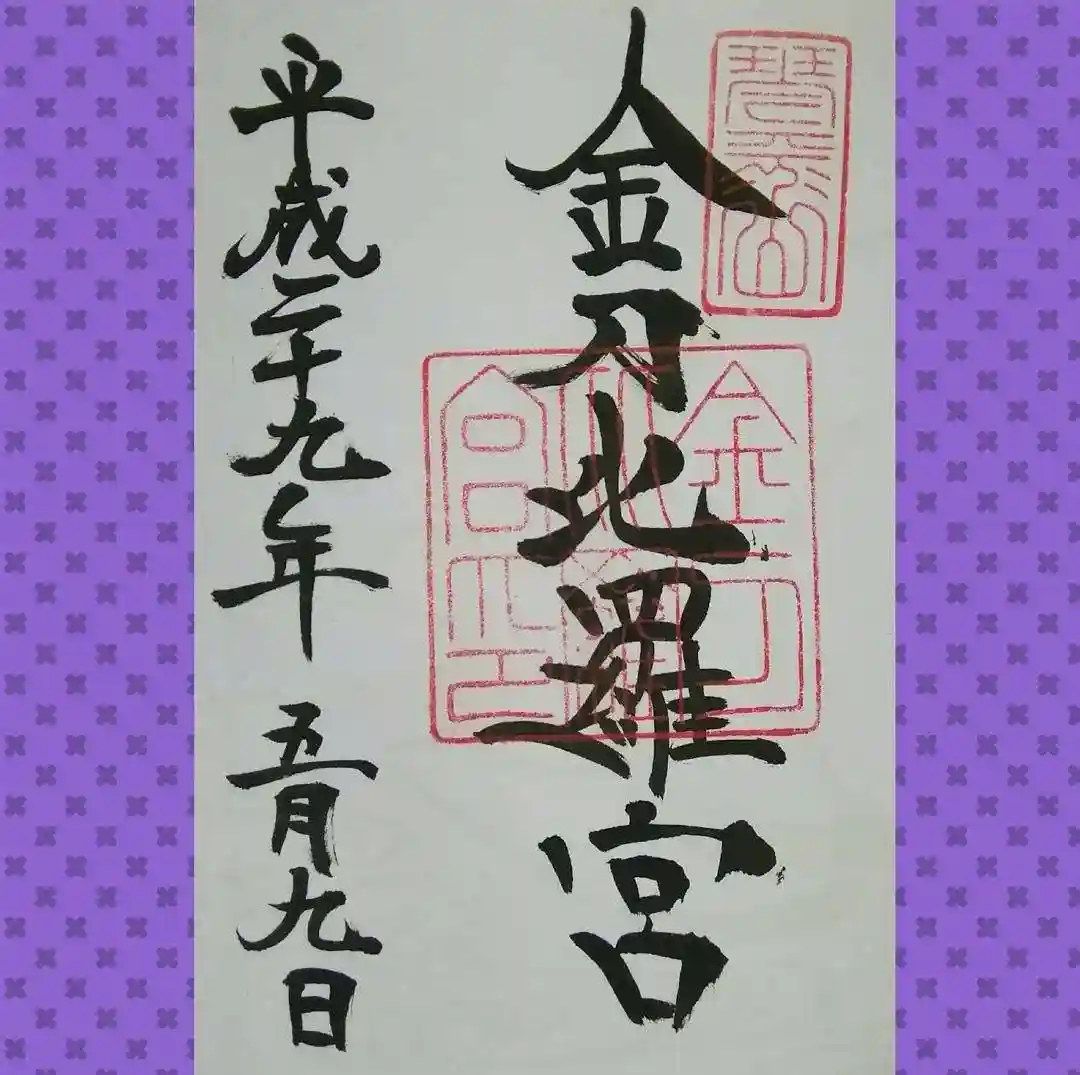 琴平山
金刀比羅宮
金刀
比羅
宮印
平成二十九年 五月九日